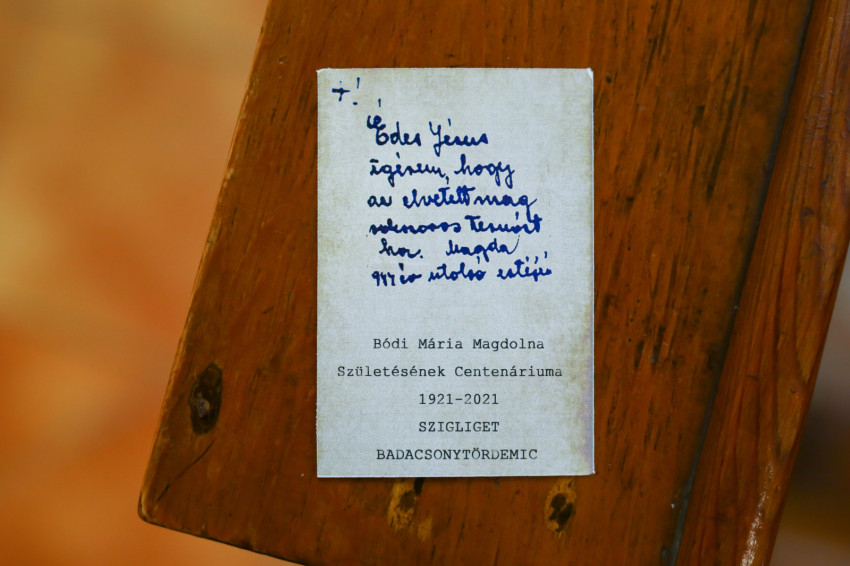 +!
Édes Jézus
igérem, hogy
az elvetett mag
sokszoros termést
hoz. Magda
944 év utolsó estéjé
Bódi Mária Magdolna
Születésének Centenáriuma
1921-2021
SZIGLIGET
BADACSONYTÖRDEMIC